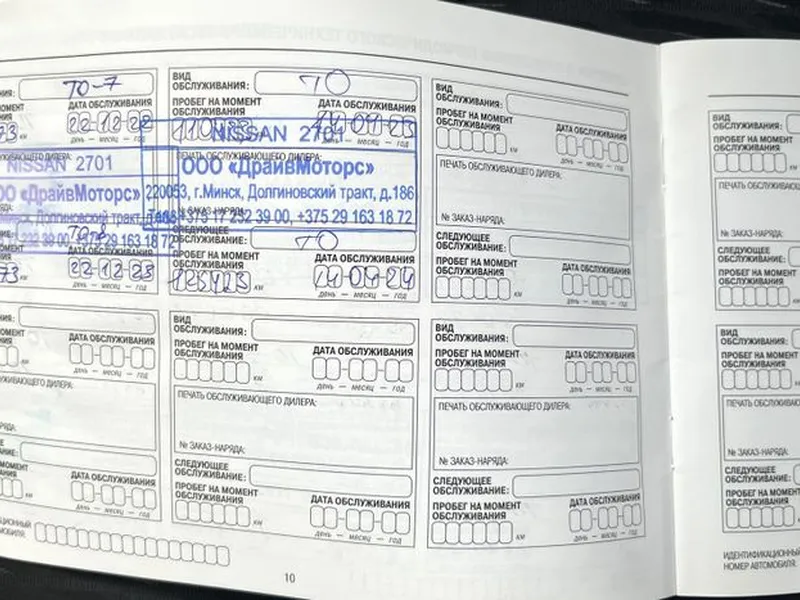 ТО-7
ДАТА ОБСЛУЖИВАНИЯ
22-12-22
день — месяц — год
NISSAN 2701
ООО «ДрайвМоторс»
22-12-23
день — месяц — год
ВИД
ОБСЛУЖИВАНИЯ:
ТО
ПРОБЕГ НА МОМЕНТ
ОБСЛУЖИВАНИЯ
NISSAN 2701
ПЕЧАТЬ ОБСЛУЖИВАЮЩЕГО ДИЛЕРА:
ООО «ДрайвМоторс»
220053, г.Минск, Долгиновский тракт, д.186
+375 17 232 39 00, +375 29 163 18 72
СЛЕДУЮЩЕЕ
ОБСЛУЖИВАНИЕ:
ТО
ПРОБЕГ НА МОМЕНТ
ОБСЛУЖИВАНИЯ
ДАТА ОБСЛУЖИВАНИЯ
125423 км
14-09-24
день — месяц — год
ВИД
ОБСЛУЖИВАНИЯ:
ПРОБЕГ НА МОМЕНТ
ОБСЛУЖИВАНИЯ
ДАТА ОБСЛУЖИВАНИЯ
км
день — месяц — год
ПЕЧАТЬ ОБСЛУЖИВАЮЩЕГО ДИЛЕРА:
№ ЗАКАЗ-НАРЯДА:
СЛЕДУЮЩЕЕ
ОБСЛУЖИВАНИЕ:
ПРОБЕГ НА МОМЕНТ
ОБСЛУЖИВАНИЯ
ДАТА ОБСЛУЖИВАНИЯ
км
день — месяц — год
ДАТА ОБСЛУЖИВАНИЯ
день — месяц — год
ДАТА ОБСЛУЖИВАНИЯ
день — месяц — год
ВИД
ОБСЛУЖИВАНИЯ:
ПРОБЕГ НА МОМЕНТ
ОБСЛУЖИВАНИЯ
ДАТА ОБСЛУЖИВАНИЯ
км
день — месяц — год
ПЕЧАТЬ ОБСЛУЖИВАЮЩЕГО ДИЛЕРА:
№ ЗАКАЗ-НАРЯДА:
СЛЕДУЮЩЕЕ
ОБСЛУЖИВАНИЕ:
ПРОБЕГ НА МОМЕНТ
ОБСЛУЖИВАНИЯ
ДАТА ОБСЛУЖИВАНИЯ
км
день — месяц — год
ВИД
ОБСЛУЖИВАНИЯ:
ПРОБЕГ НА МОМЕНТ
ОБСЛУЖИВАНИЯ
ДАТА ОБСЛУЖИВАНИЯ
км
день — месяц — год
ПЕЧАТЬ ОБСЛУЖИВАЮЩЕГО ДИЛЕРА:
№ ЗАКАЗ-НАРЯДА:
СЛЕДУЮЩЕЕ
ОБСЛУЖИВАНИЕ:
ПРОБЕГ НА МОМЕНТ
ОБСЛУЖИВАНИЯ
ДАТА ОБСЛУЖИВАНИЯ
км
день — месяц — год
10
ВИД
ОБСЛУЖИВАНИЯ:
ПРОБЕГ НА МОМЕНТ
ОБСЛУЖИВАНИЯ
км
№ ЗАКАЗ-НАРЯДА:
СЛЕДУЮЩЕЕ
ОБСЛУЖИВАНИЕ:
ПРОБЕГ НА МОМЕНТ
ОБСЛУЖИВАНИЯ
км
ВИД
ОБСЛУЖИВАНИЯ:
ПРОБЕГ НА МОМЕНТ
ОБСЛУЖИВАНИЯ
км
№ ЗАКАЗ-НАРЯДА:
СЛЕДУЮЩЕЕ
ОБСЛУЖИВАНИЕ:
ПРОБЕГ НА МОМЕНТ
ОБСЛУЖИВАНИЯ
км
ИДЕНТИФИКАЦИОННЫЙ
НОМЕР АВТОМОБИЛЯ: